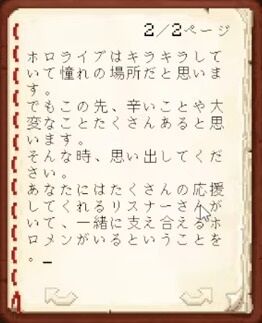 2/2ページ
ホロライブはキラキラして
いて憧れの場所だと思いま
す。
でもこの先、辛いことや大
変なことたくさんあると思
います。
そんな時、思い出してくだ
さい。
あなたにはたくさんの応援
してくれるリスナーさんが
いて、一緒に支え合えるホ
ロメンがいるということを
。_